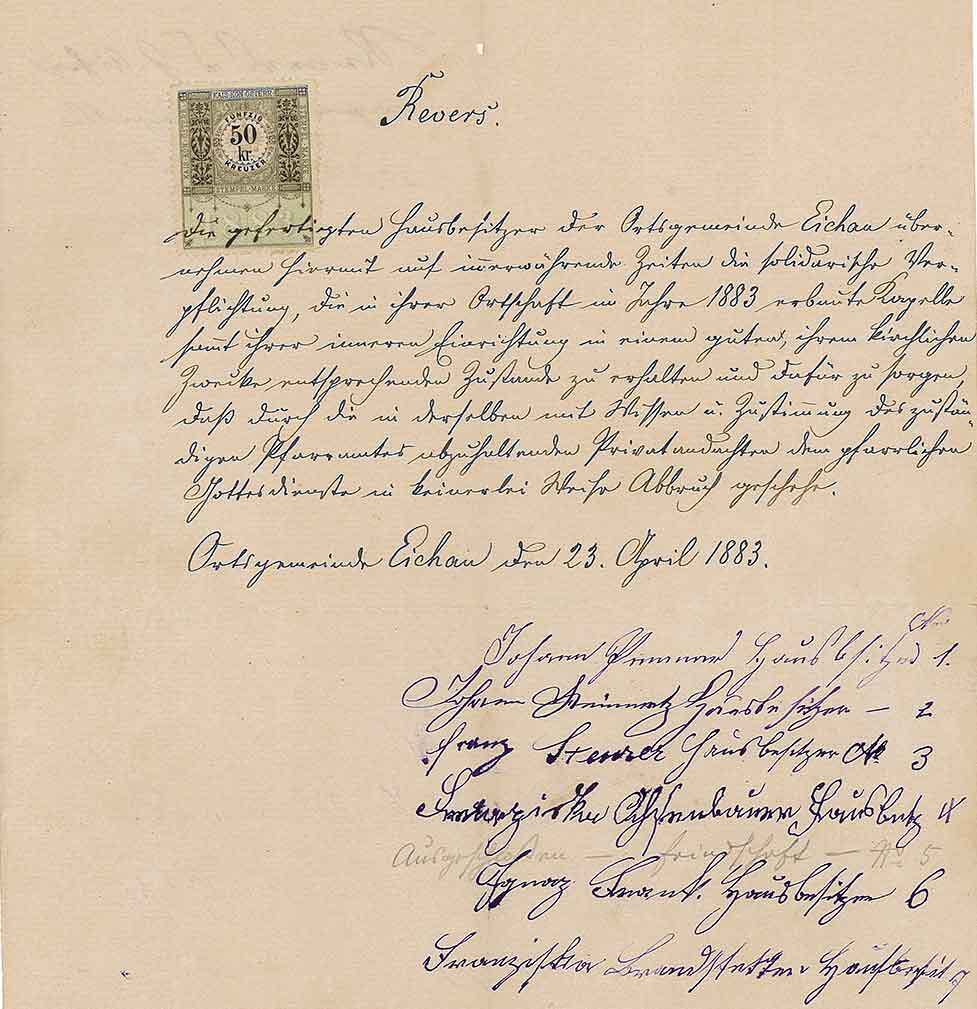 Revers.
KAIS. KÖN. ÖSTERR.
FÜNFZIG
50
kr.
KREUZER
STEMPEL-MARKE
Die gefertigten Hausbesitzer der Ortsgemeinde Eichau über-
nehmen hiermit auf immerwährende Zeiten die solidarische Ver-
pflichtung, die in ihrer Ortschaft im Jahre 1883 erbaute Kapelle
sammt ihrer inneren Einrichtung in einem guten, ihrem kirchlichen
Zwecke entsprechenden Zustande zu erhalten und dafür zu sorgen,
daß durch die in derselben mit Wissen u. Zustimmung des zustän-
digen Pfarramtes abzuhaltenden Privatandachten dem pfarrlichen
Gottesdienste in keinerlei Weise Abbruch geschehe.
Ortsgemeinde Eichau den 23. April 1883.
Johann Hausbesitzer No 1.
Johann Hausbesitzer — 2
Franz Hausbesitzer No 3
Franziska Ochsenbauer Hausbesitz 4
Ausgeschlossen — Feindschaft — No 5
Ignaz Frank. Hausbesitzer 6
Franziska Brandstetter Hausbesitz 7